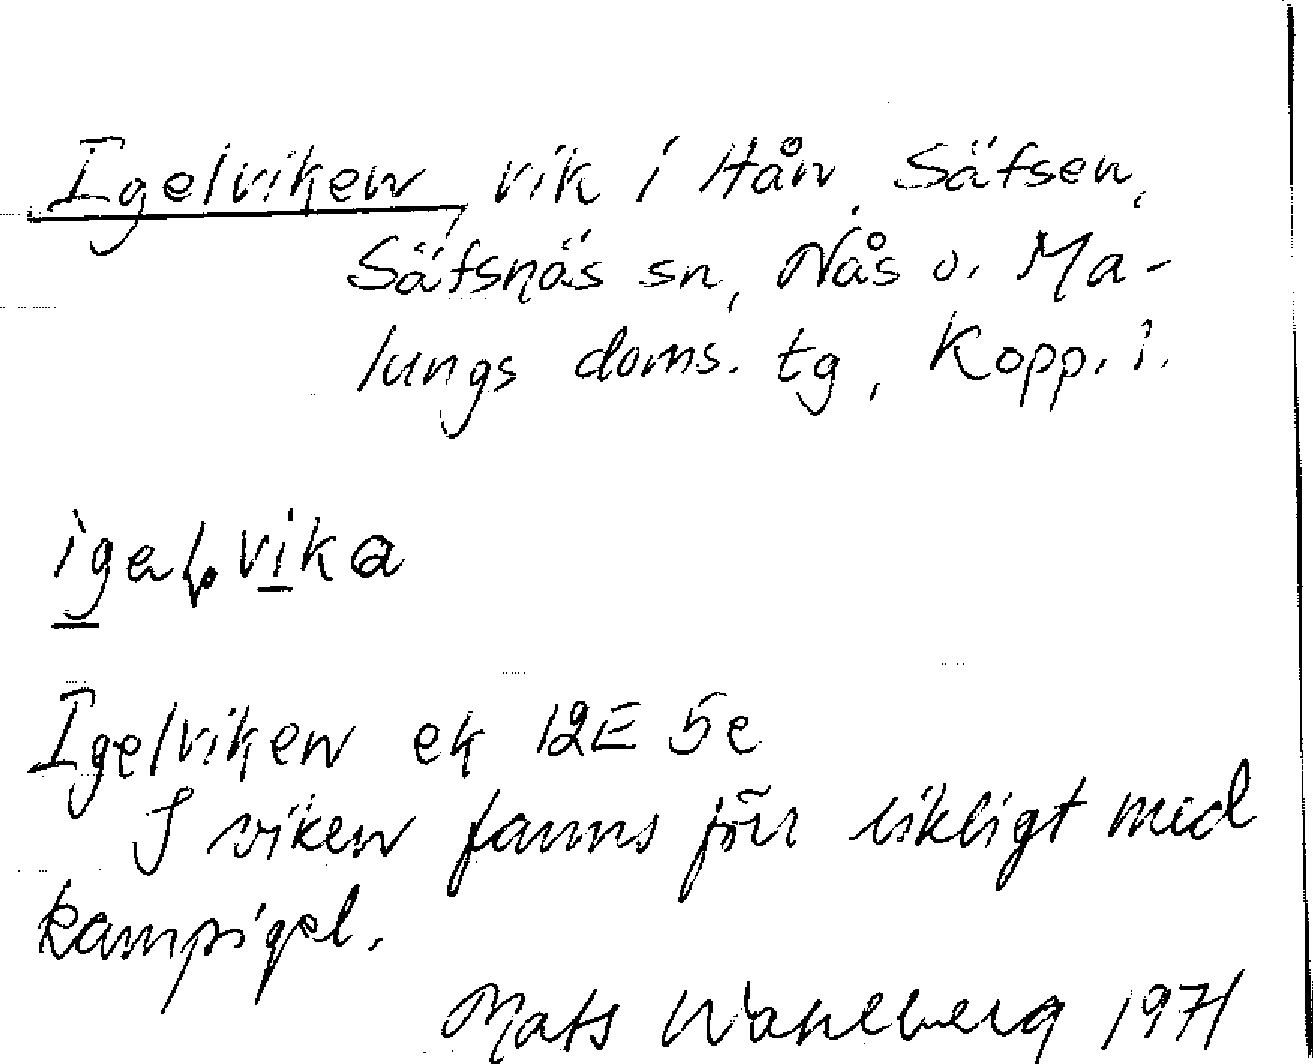 Igelviken, vik i Hån, Säfsen,
Säfsnäs sn, Nås o. Ma-
lungs doms. tg, Kopp. l.
Igelviken ek 12E 5e
I viken fanns förr rikligt med
kampigel.
Mats Wahlberg 1971